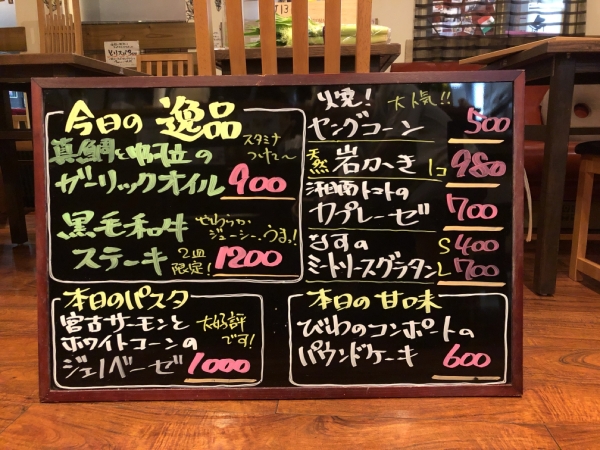 今日の 逸品
真鯛と帆立の
スタミナ
つけて〜
ガーリックオイル 900
黒毛和牛
やわらか
ジューシー、うまっ!
ステーキ 2皿
限定! 1200
本日のパスタ
宮古サーモンと
ホワイトコーンの
大好評
です!
ジェノベーゼ 1000
火焼! 大人気!!
ヤングコーン 500
天然 岩かき 1コ 980
湘南トマトの
カプレーゼ 700
なすの S 400
ミートソースグラタン L 700
本日の甘味
びわのコンポートの
パウンドケーキ 600